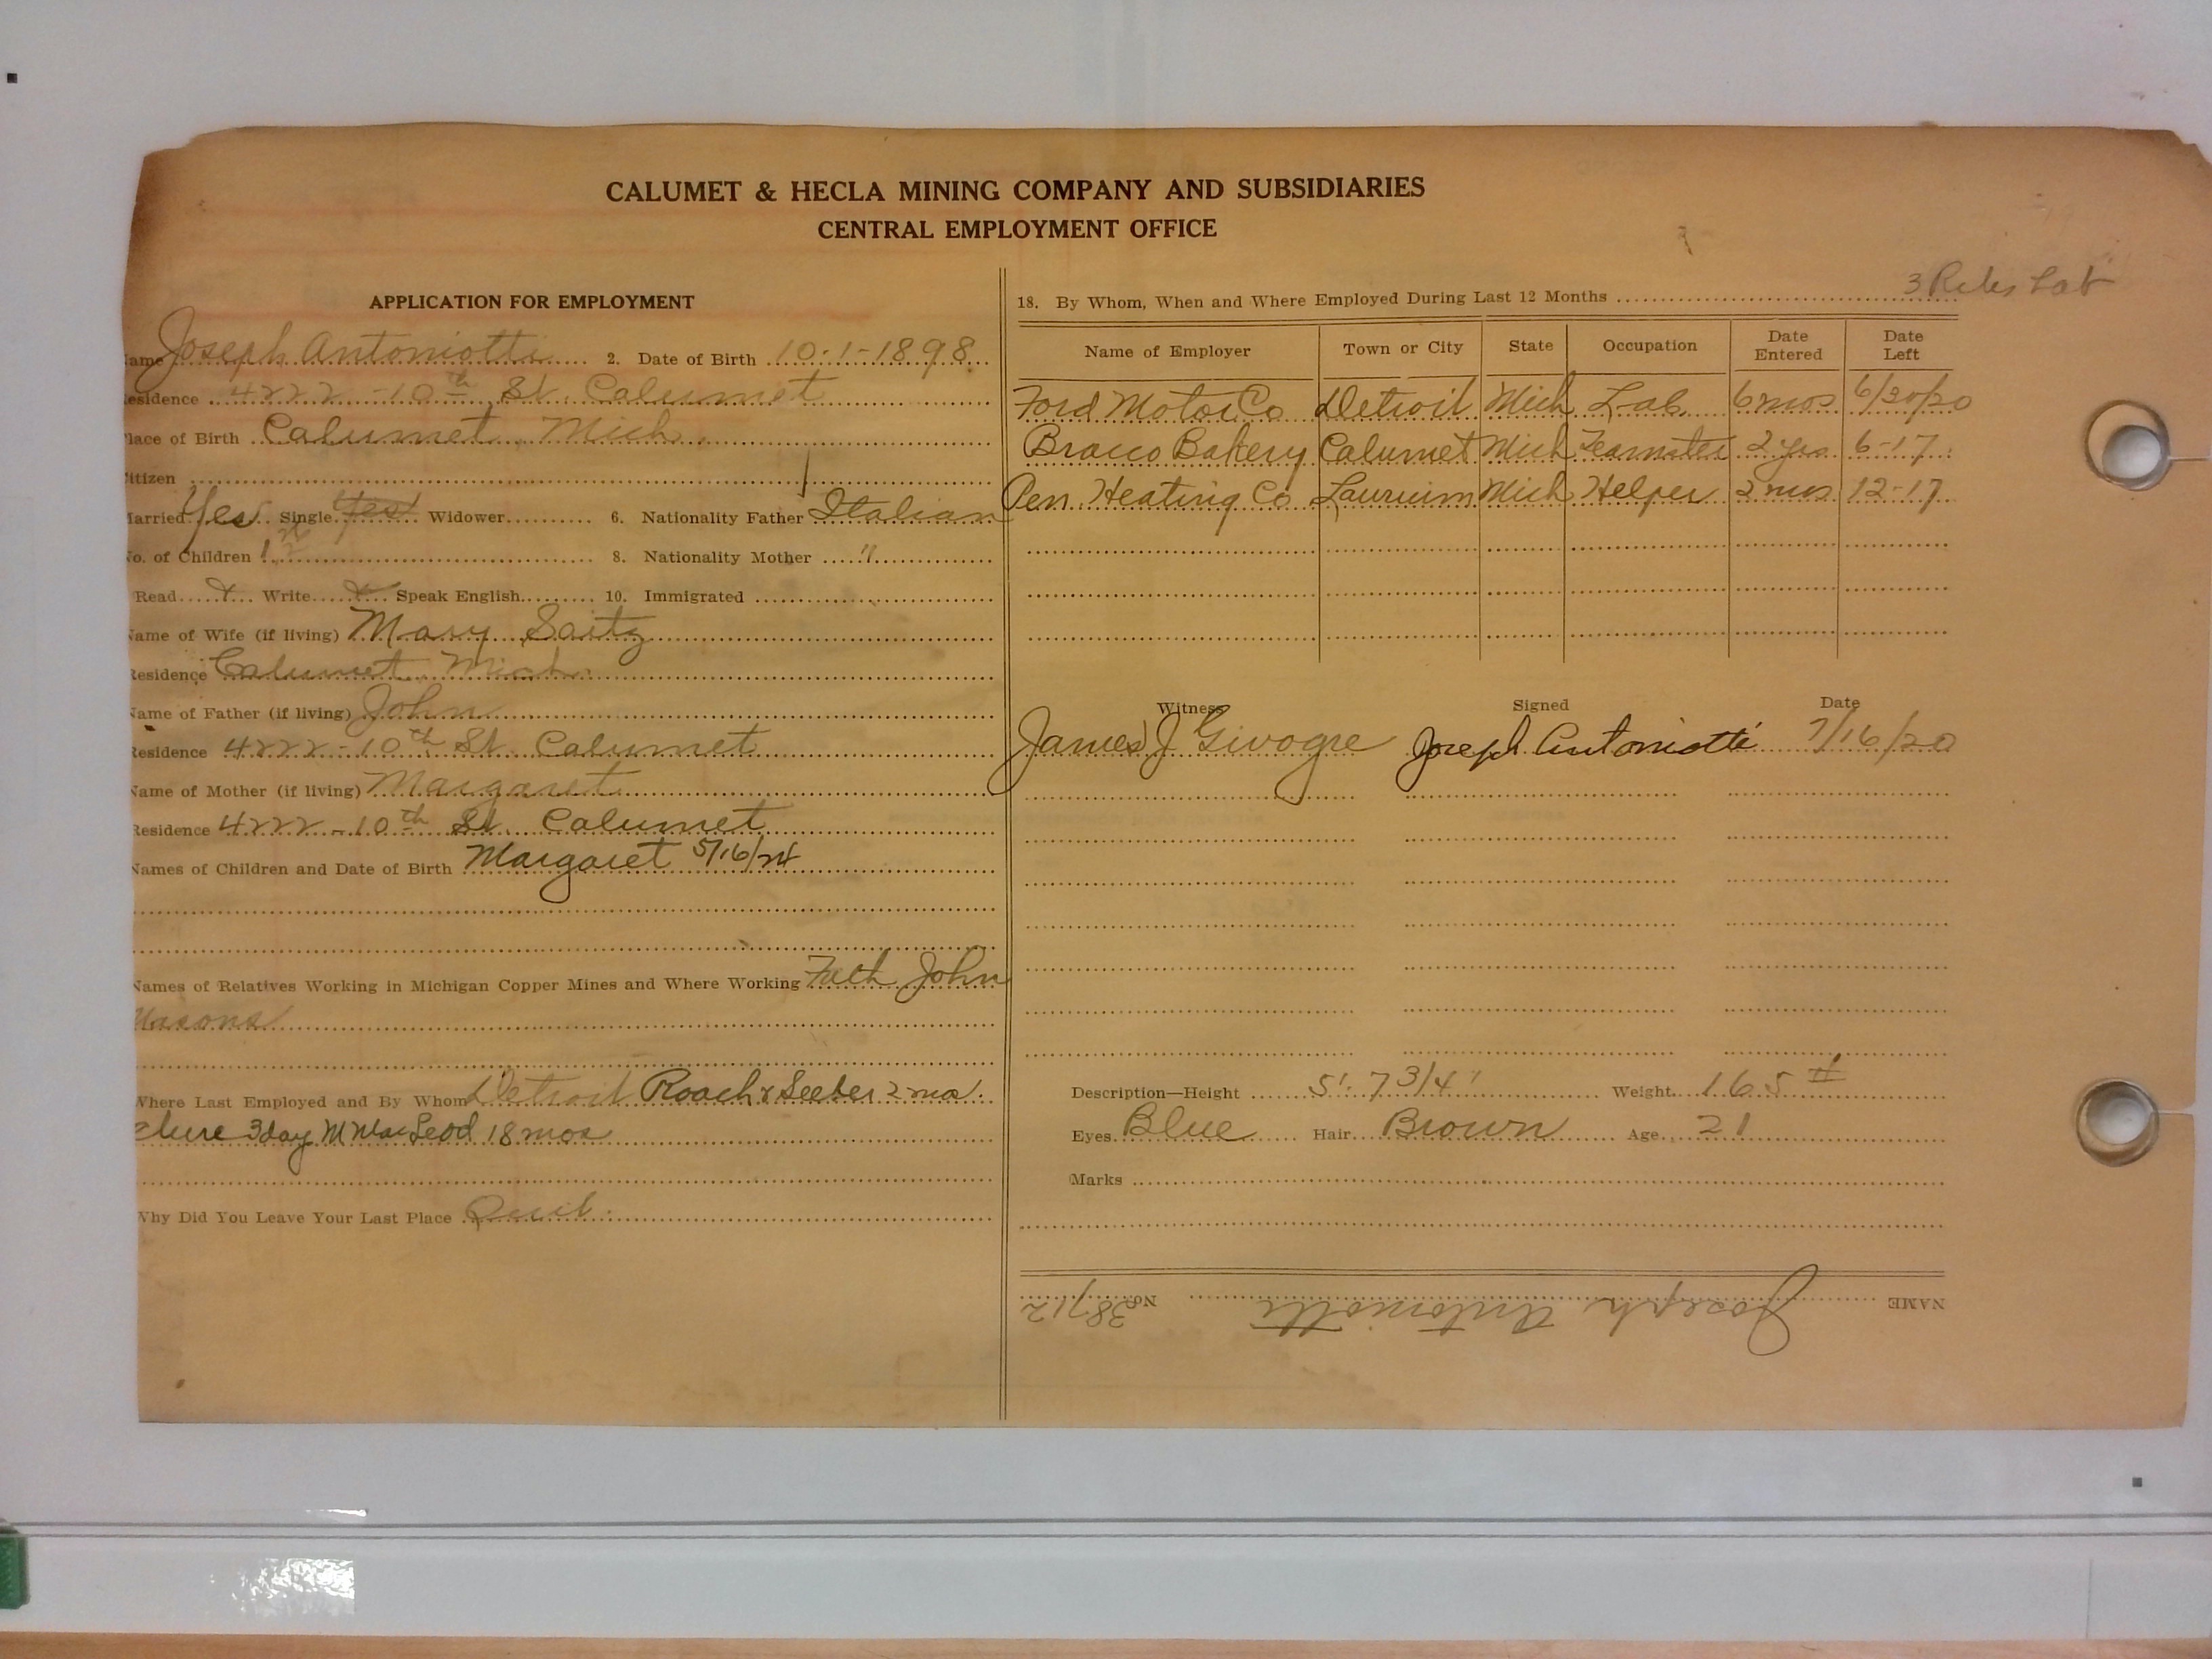 CALUMET & HECLA MINING COMPANY AND SUBSIDIARIES
CENTRAL EMPLOYMENT OFFICE
APPLICATION FOR EMPLOYMENT
ame Joseph Antoniotti 2. Date of Birth 10-1-1898
esidence 4222-10th St. Calumet
lace of Birth Calumet, Mich.
itizen
arried Yes Single Yes Widower 6. Nationality Father Italian
o. of Children 1 8. Nationality Mother "
Read x Write x Speak English 10. Immigrated
ame of Wife (if living) Mary Saitz
Residence Calumet Mich.
ame of Father (if living) John
Residence 4222-10th St. Calumet
Name of Mother (if living) Margaret
Residence 4222-10th St. Calumet
Names of Children and Date of Birth Margaret 5/16/24
Names of Relatives Working in Michigan Copper Mines and Where Working Fath John
Masons
Where Last Employed and By Whom Detroit Roach & Seeber 2 mos.
3 day M MacLeod 18 mos
Why Did You Leave Your Last Place Quit.
3 Lab
18. By Whom, When and Where Employed During Last 12 Months
Name of Employer Town or City State Occupation Date Entered Date Left
Ford Motor Co Detroit Mich Lab. 6 mos 6/30/20
Bracco Bakery Calumet Mich Teamster 2 yrs 6-17
Pen. Heating Co Laurium Mich Helper 2 mos 12-17
Witness Signed Date
James J Givogre Joseph Antoniotti 7/16/20
Description—Height 5' 7 3/4" Weight 165 #
Eyes Blue Hair Brown Age 21
Marks
NAME Joseph Antoniotti No. 38712